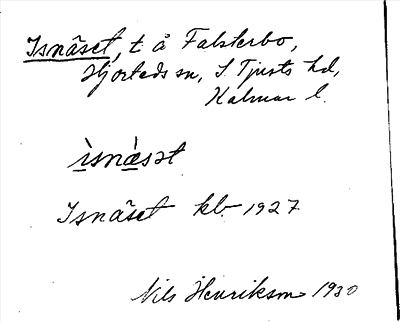 Isnäset, t. å Falsterbo,
Hjorteds sn, S. Tjusts hd,
Kalmar l.
ìsnὰsət
Isnäset kb 1927
Nils Henriksson 1930